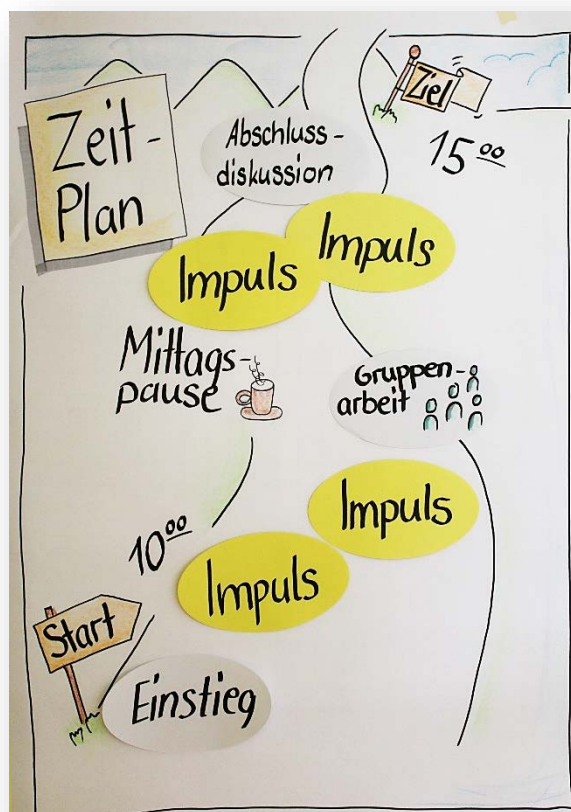 Zeit-
Plan
Ziel
15⁰⁰
Abschluss-
diskussion
Impuls
Impuls
Mittags-
pause
Gruppen-
arbeit
Impuls
10⁰⁰
Impuls
Start
Einstieg